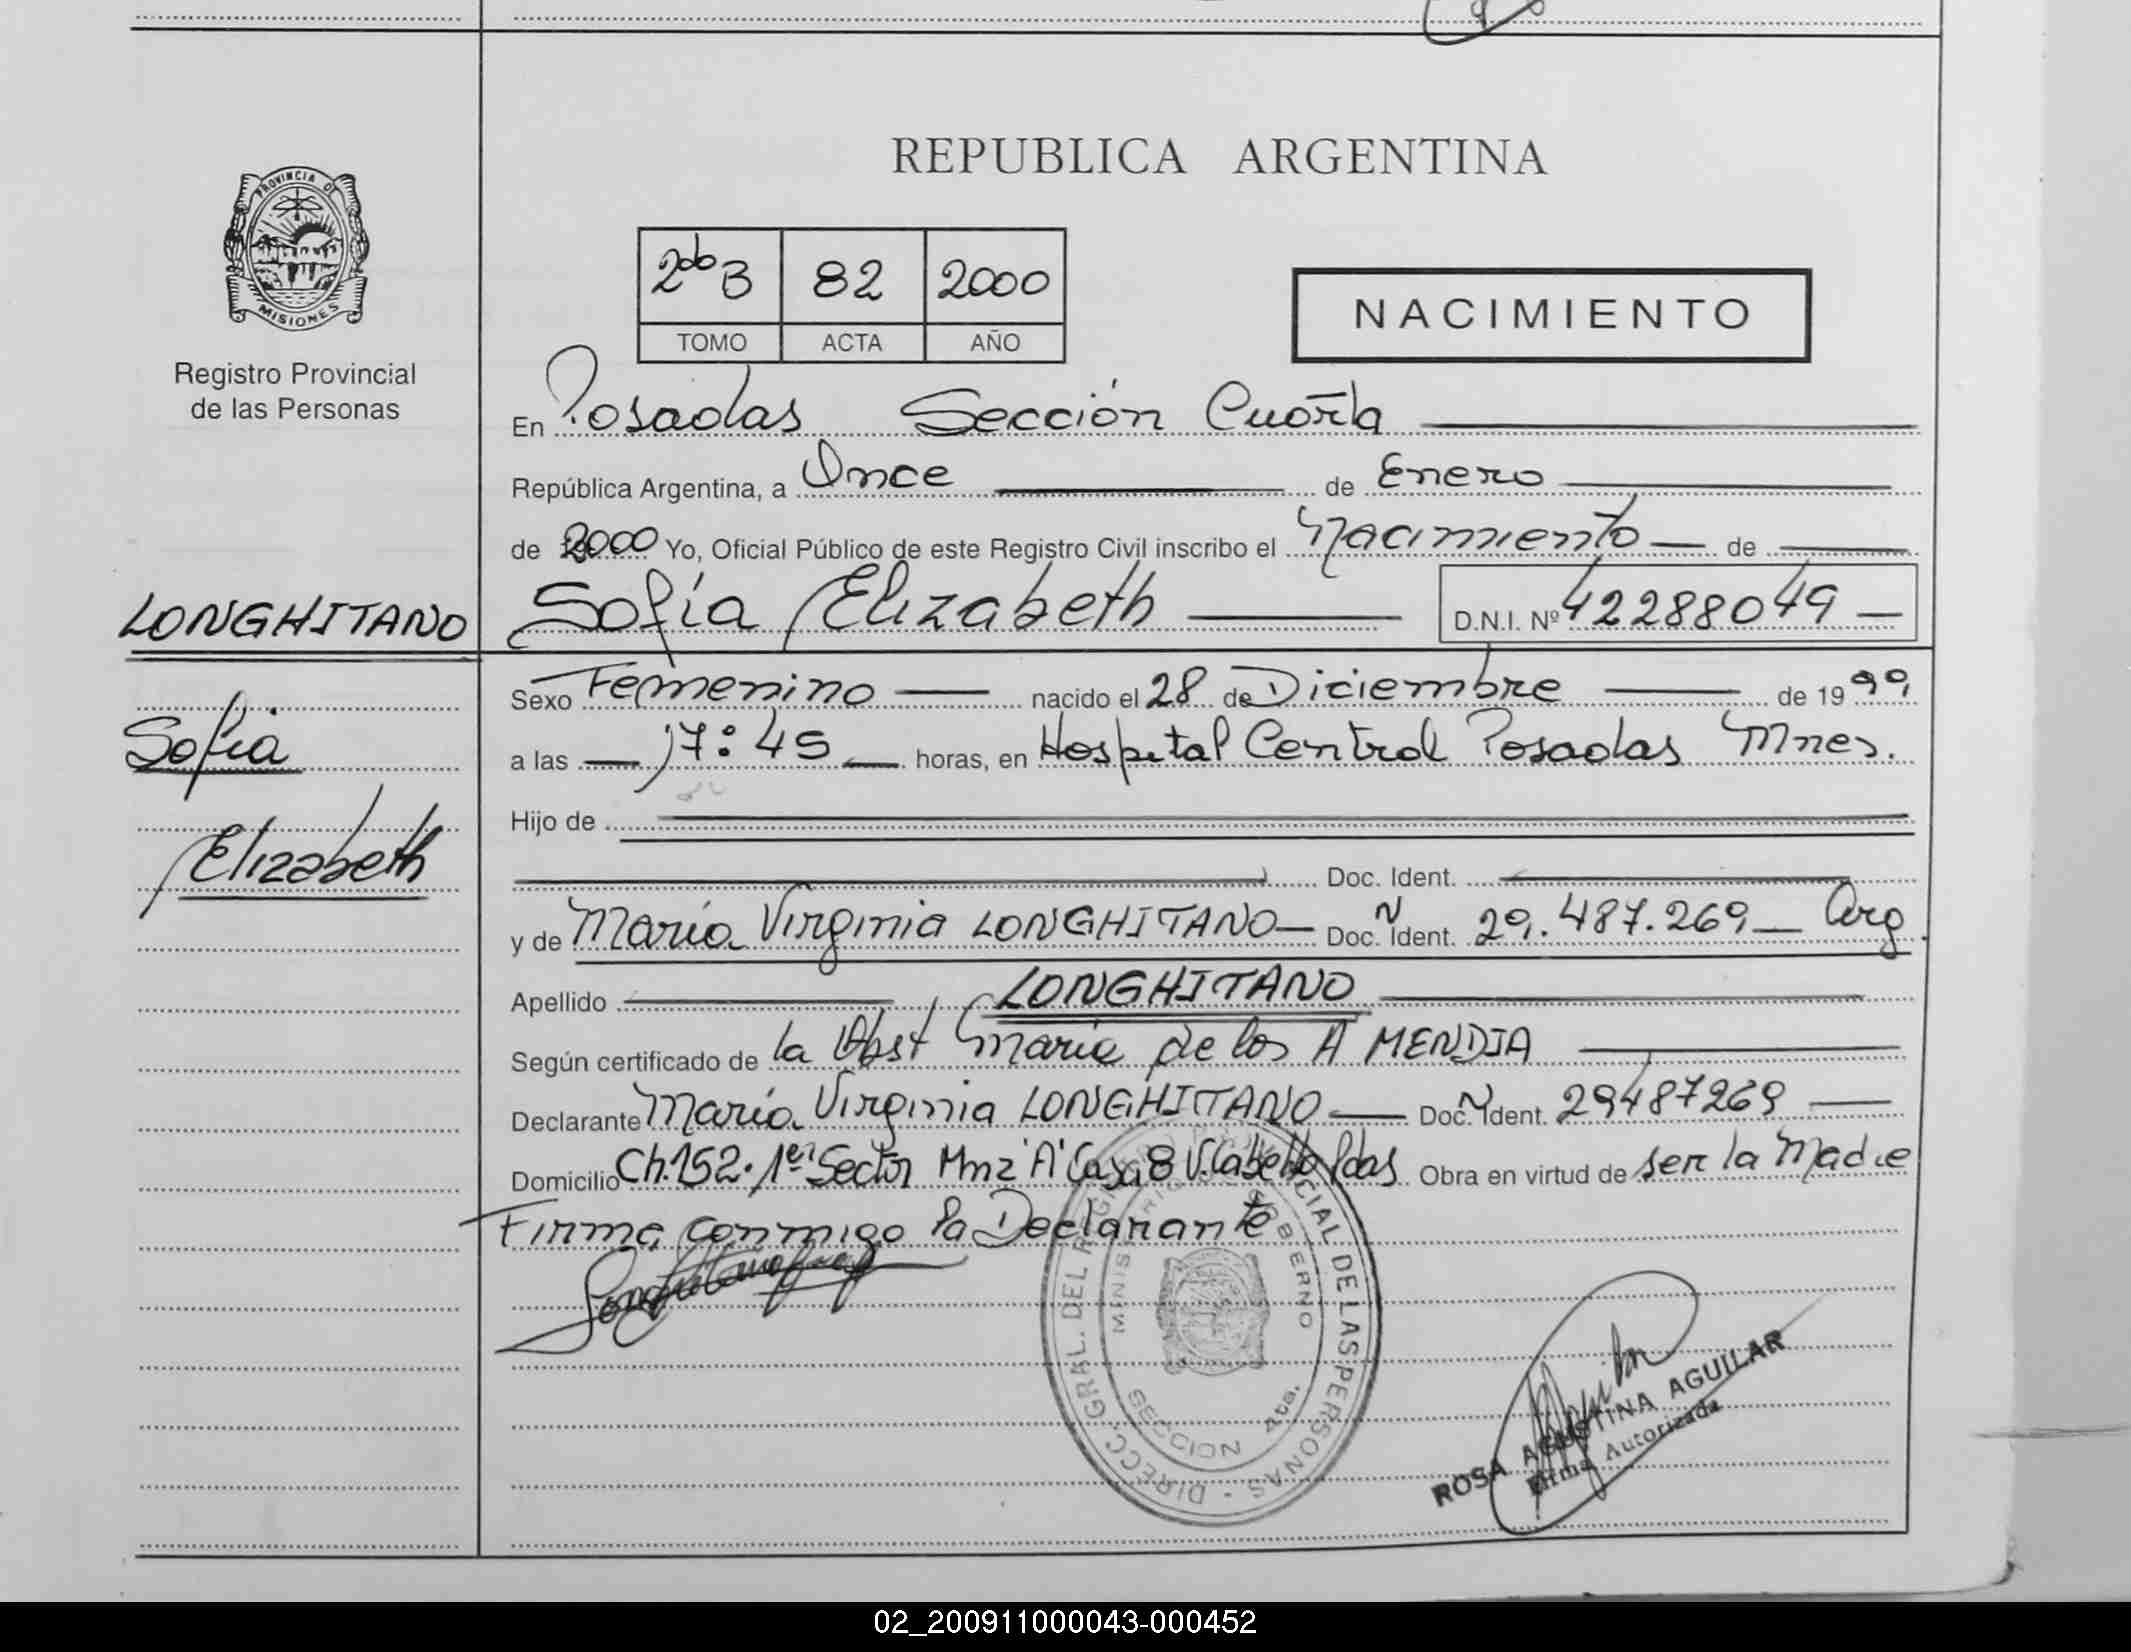 PROVINCIA DE
MISIONES
Registro Provincial
de las Personas
LONGHITANO
Sofia
Elizabeth
REPUBLICA ARGENTINA
2do B 82 2000
TOMO ACTA AÑO
NACIMIENTO
En Posadas Sección Cuarta
República Argentina, a Once de Enero
de 2000 Yo, Oficial Público de este Registro Civil inscribo el Nacimiento de
Sofía Elizabeth D.N.I. Nº 42288049
Sexo Femenino nacido el 28 de Diciembre de 19 99
a las 17:45 horas, en Hospital Central Posadas Mnes.
Hijo de
Doc. Ident.
y de María Virginia LONGHITANO Doc. N Ident. 29.487.269 Arg.
Apellido LONGHITANO
Según certificado de la Obst María de los A MENDIA
Declarante María Virginia LONGHITANO Doc. N Ident. 29487269
Domicilio Ch.152. 1er Sector Mnz "A" Casa 8 V. Cabello Pdas Obra en virtud de ser la Madre
Firma conmigo la Declarante
DIRECC. GRAL. DEL REGISTRO PROVINCIAL DE LAS PERSONAS
MINISTERIO DE GOBIERNO
SECCION 4ta.
ROSA AGUSTINA AGUILAR
Firma Autorizada
02_200911000043-000452